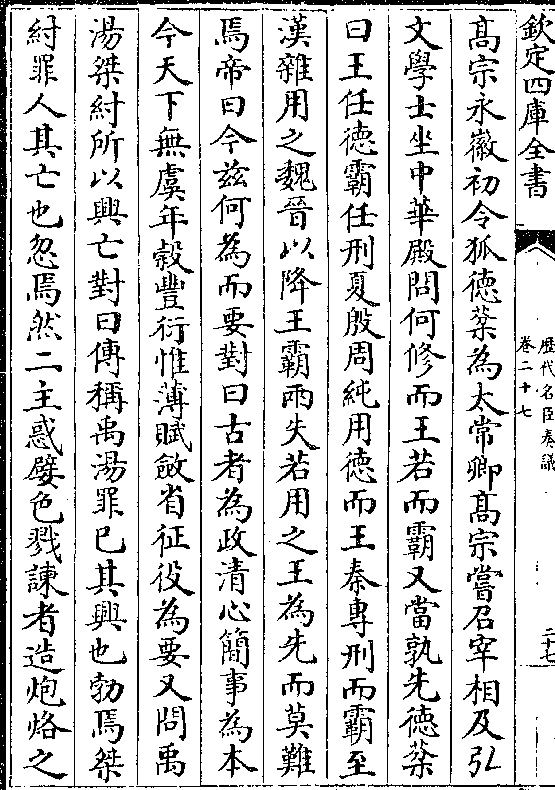 欽定四庫全書
歴代名臣奏議
卷二十七
二十七
髙宗永徽初令狐徳棻為太常卿髙宗嘗召宰相及弘
文學士坐中華殿問何修而王若而霸又當孰先徳棻
曰王任徳霸任刑夏殷周純用徳而王秦專刑而霸至
漢雜用之魏晉以降王霸兩失若用之王為先而莫難
焉帝曰今兹何為而要對曰古者為政清心簡事為本
今天下無虞年穀豐衍惟薄賦斂省征役為要又問禹
湯桀紂所以興亡對曰傳稱禹湯罪已其興也勃焉桀
紂罪人其亡也忽焉然二主惑嬖色戮諫者造炮烙之